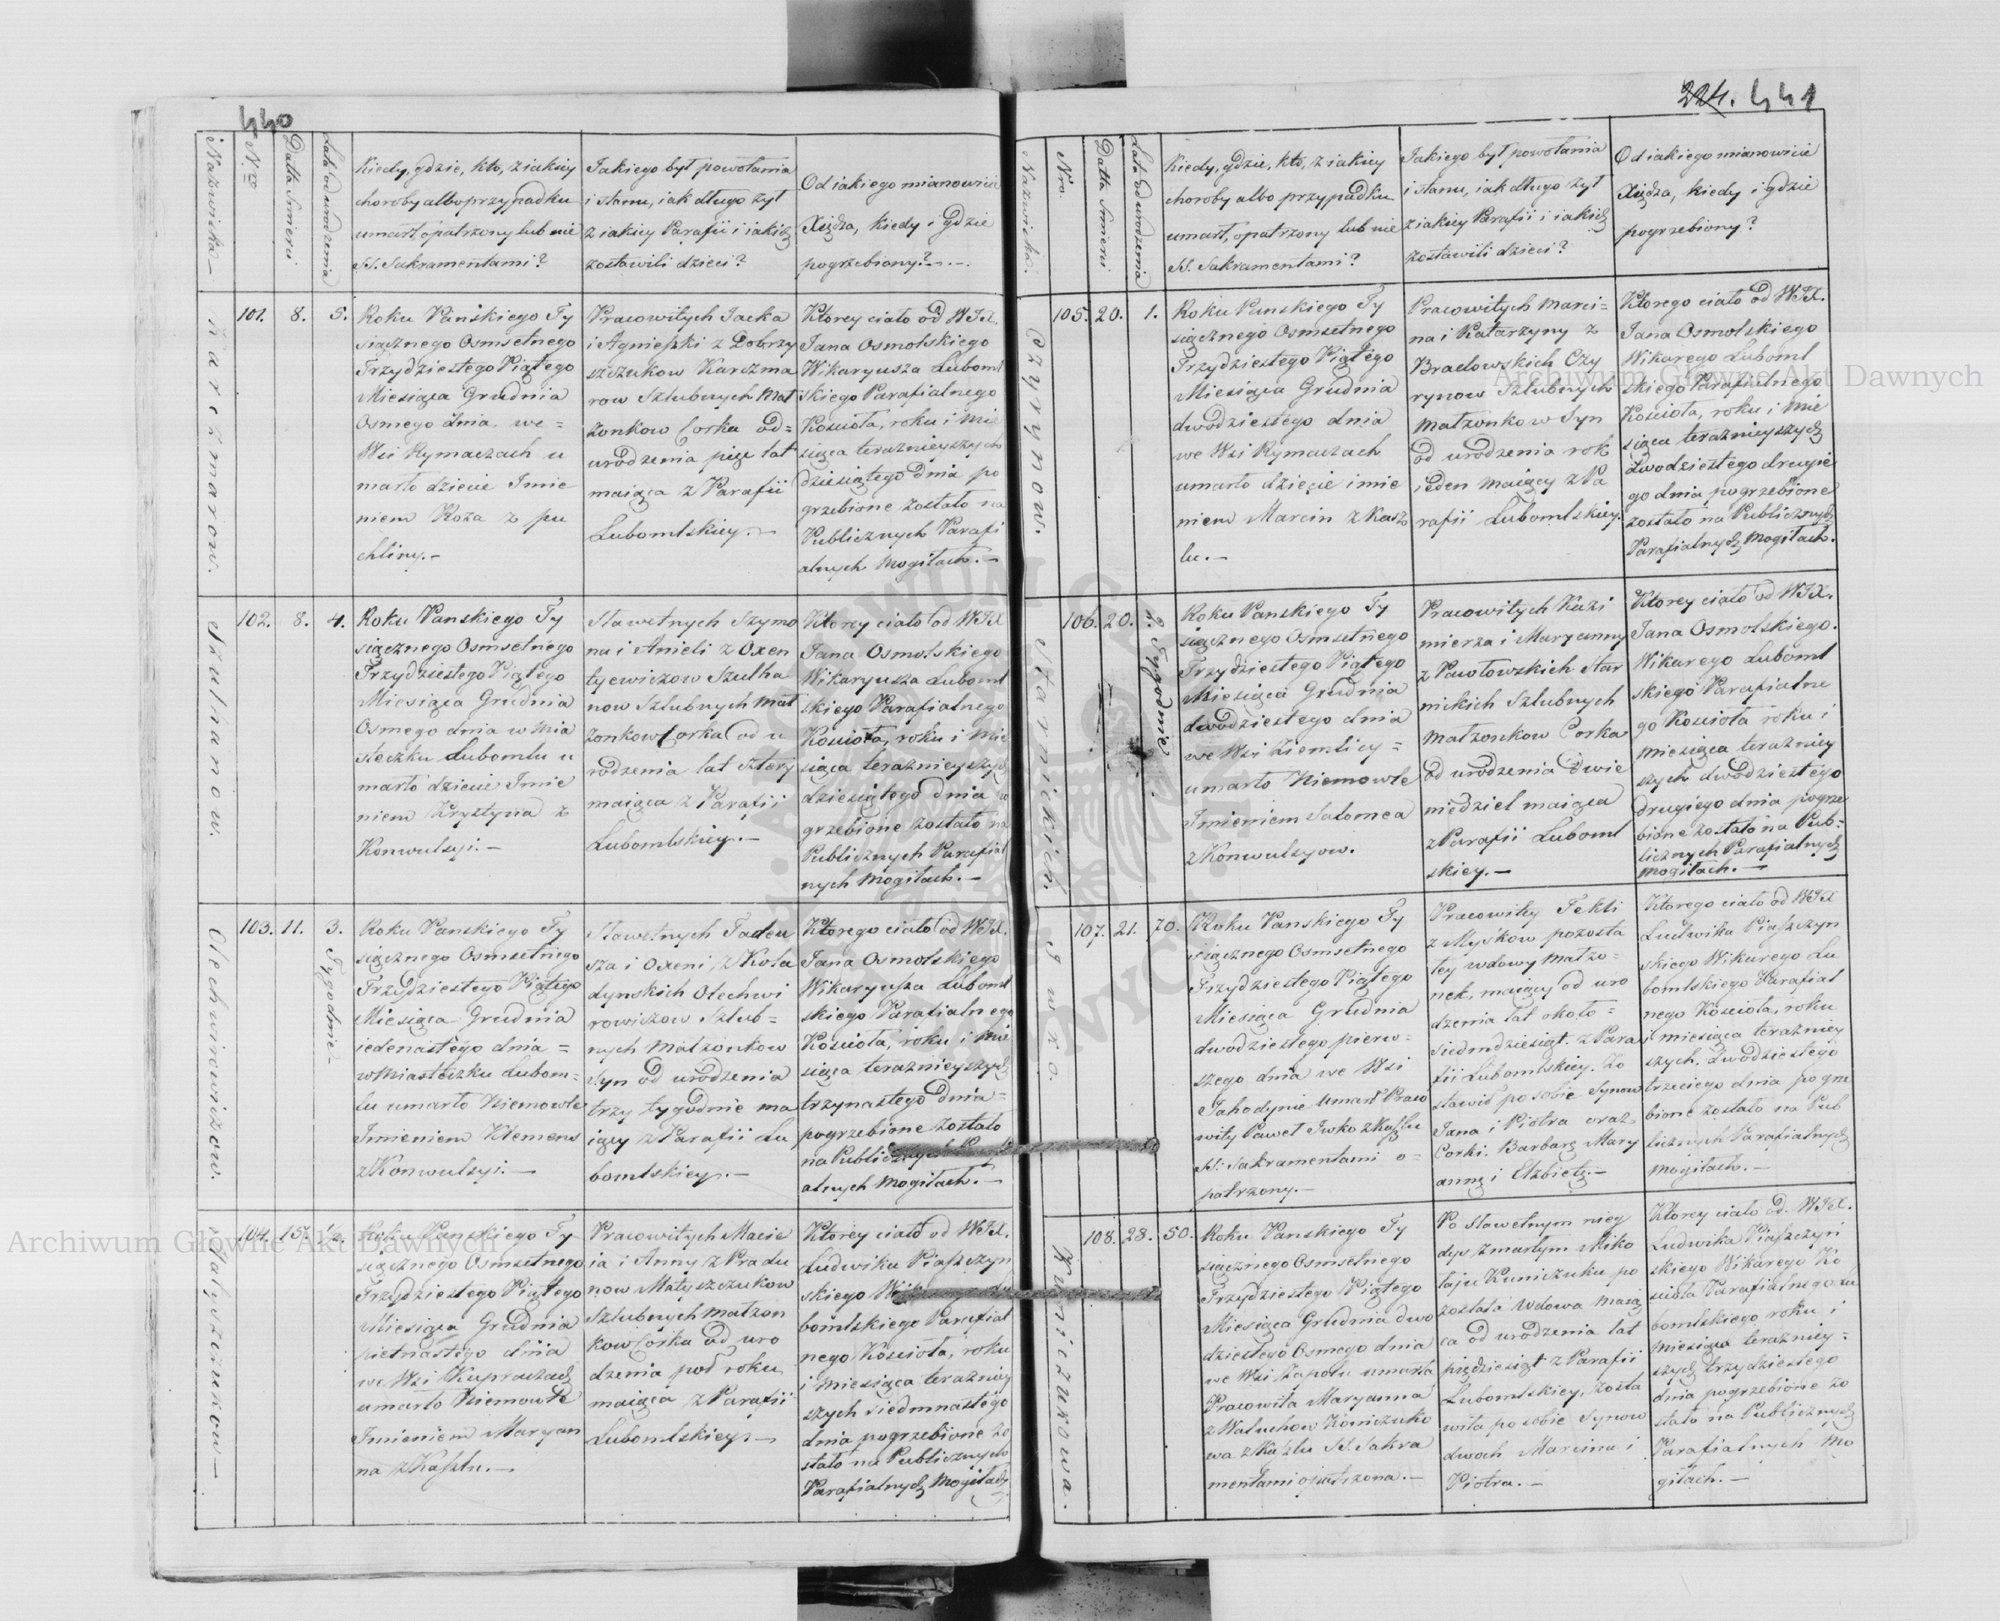 440
Nazwiska
Nro
Datta Smierci
Lata od urodzenia
Kiedy, gdzie, kto, z iakiey
choroby albo przypadku
umarł, opatrzony lub nie
SS. Sakramentami?
Jakiego był powołania
i stanu, iak długo żył
z iakiey Parafii i iakich
zostawili dzieci?
Od iakiego mianowicie
Xiędza, kiedy i gdzie
pogrzebiony?
Karczmarow.
101. 8. 5.
Roku Panskiego Ty
siącznego Osmsetnego
Trzydziestego Piątego
Miesiąca Grudnia
Osmego dnia we=
Wsi Rymaczach u
marło dziecie Imie
niem Roża z pu
chliny.-
Pracowitych Jacka
i Agnieszki z Dobrzy
szczukow Karczma
row Szlubnych Mał
żonkow Corka od=
urodzenia pięc lat
maiąca z Parafii
Lubomlskiey.-
Ktorey ciało od WJX.
Jana Osmolskiego
Wikaryusza Luboml
skiego Parafialnego
Kościoła, roku i mie
siąca teraznieyszych
dziesiątego dnia po
grzebione zostało na
Publicznych Parafi
alnych mogiłach.-
Szulhanow.
102. 8. 4.
Roku Panskiego Ty
siącznego Osmsetnego
Trzydziestego Piątego
Miesiąca Grudnia
Osmego dnia w mia
steczku Lubomlu u
marło dziecie Imie
niem Krystyna z
Konwulsyi.-
Sławetnych Szymo
na i Anieli z Oxen
tyewiczow Szulha
now Szlubnych Mał
żonkow Corka od u
rodzenia lat cztery
maiąca z Parafii
Lubomlskiey.-
Ktorey ciało od WJX
Jana Osmolskiego
Wikaryusza Luboml
skiego Parafialnego
Kościoła, roku i mie
siąca teraznieyszych
dziesiątego dnia po
grzebione zostało na
Publicznych Parafial
nych mogiłach.-
Olechwirowiczow.
103. 11. 3. Tygodnie
Roku Panskiego Ty
siącznego Osmsetnego
Trzydziestego Piątego
Miesiąca Grudnia
iedenastego dnia=
w Miasteczku Lubom=
lu umarło Niemowle
Imieniem Klemens
z Konwulsyi.-
Sławetnych Tadeu
sza i Oxeni z Kola
dynskich Olechwi
rowiczow Szlub=
nych Małżonkow
Syn od urodzenia
trzy tygodnie ma
iący z Parafii Lu
bomlskiey.-
Ktorego ciało od WJX.
Jana Osmolskiego
Wikaryusza Luboml
skiego Parafialnego
Kościoła, roku i mie
siąca teraznieyszych
trzynastego dnia=
pogrzebione zostało
na Publicznych
alnych mogiłach.-
Matyszczukow
104. 15. 1/2.
Roku Panskiego Ty
siącznego Osmsetnego
Trzydziestego Piątego
Miesiąca Grudnia
pietnastego dnia
we Wsi Kupraczach
umarło Niemowle
Imieniem Maryan
na z Kaszlu.-
Pracowitych Macie
ia i Anny z Pradu
now Matyszczukow
Szlubnych małżon
kow Córka od uro
dzenia pół roku
maiąca z Parafii
Lubomlskiey.-
Ktorey ciało od WJX.
Ludwika Piaszczyn
skiego
bomlskiego Parafial
nego Kościoła, roku
i miesiąca terazniey
szych siedmnastego
dnia pogrzebione zo
stało na Publicznych
Parafialnych mogiłach
224. 441
Nazwiska.
Nro.
Datta Smierci
Lata od urodzenia
Kiedy, gdzie, kto, z iakiey
choroby albo przypadku
umarł, opatrzony lub nie
SS. Sakramentami?
Jakiego był powołania
i stanu, iak długo żył
z iakiey Parafii i iakich
zostawili dzieci?
Od iakiego mianowicie
Xiędza, kiedy i gdzie
pogrzebiony?
Czyrynow.
105. 20. 1.
Roku Panskiego Ty
siącznego Osmsetnego
Trzydziestego Piątego
Miesiąca Grudnia
dwodziestego dnia
we Wsi Rymaczach
umarło dziecie imie
niem Marcin z Kasz
lu.-
Pracowitych Marci=
na i Katarzyny z
Braclowskich Czy
rynow Szlubnych
Małżonkow Syn
od urodzenia rok
ieden maiący z Pa
rafii Lubomlskiey.
Ktorego ciało od WJX.
Jana Osmolskiego
Wikarego Luboml
skiego Parafialnego
Kościoła, roku i mie
siąca teraznieyszych
dwodziestego drugie
go dnia pogrzebione
zostało na Publicznych
Parafialnych mogiłach.
Starnickich.
106. 20. 2. Tygodnie
Roku Panskiego Ty
siącznego Osmsetnego
Trzydziestego Piątego
Miesiąca Grudnia
dwodziestego dnia
we Wsi Ziemlicy=
umarło Niemowle
Imieniem Salomea
z Konwulsyow.
Pracowitych Kazi
mierza i Maryanny
z Pawłowskich Star
nickich Szlubnych
Małżonkow Corka
od urodzenia dwie
niedziel maiąca
z Parafii Luboml
skiey.-
Ktorey ciało od WJX.
Jana Osmolskiego.
Wikarego Luboml
skiego Parafialne
go Kościoła roku i
miesiąca terazniey
szych dwodziestego
drugiego dnia pogrze
bione zostało na Pub=
licznych Parafialnych
mogiłach.-
Iwko.
107. 21. 70.
Roku Panskiego Ty
siącznego Osmsetnego
Trzydziestego Piątego
Miesiąca Grudnia
dwodziestego pierw=
szego dnia we Wsi
Jahodynie umarł Praco
wity Paweł Iwko z Kaszlu
SS. Sakramentami o=
patrzony.-
Pracowitey Tekli
z Myśkow pozosta
łey wdowy małżo=
nek, maiący od uro
dzenia lat około=
siedmdziesiąt. z Para
fii Lubomlskiey. Zo
stawił po sobie Synow
Jana i Piotra oraz
Corki. Barbarę Mary
annę i Elżbietę.-
Ktorego ciało od WJX
Ludwika Piaszczyn
skiego Wikarego Lu
bomlskiego Parafial
nego Kościoła, roku
i miesiąca terazniey
szych. dwodziestego
trzeciego dnia pogrze
bione zostało na Pub
licznych Parafialnych
mogiłach.-
Kuniczukowa.
108. 28. 50.
Roku Panskiego Ty
siącznego Osmsetnego
Trzydziestego Piątego
Miesiąca Grudnia dwo
dziestego Osmego dnia
we Wsi Zapolu umarła
Pracowita Maryanna
z Waluchow Koniczuko
wa z Kaszlu SS. Sakra
mentami opatrzona.-
Po Sławetnym nieg
dyś zmarłym Miko
łaju Kuniczuku po
została Wdowa maią
ca od urodzenia lat
pięćdziesiąt z Parafii
Lubomlskiey, zosta
wiła po sobie Synow
dwoch Marcina i
Piotra.-
Ktorey ciało od. WJX.
Ludwika Piaszczyń
skiego Wikarego Ko
scioła Parafialnego Lu
bomlskiego roku i
miesiąca terazniey=
szych trzydziestego
dnia pogrzebione zo
stało na Publicznych
Parafialnych mo
giłach.-
Archiwum Główne Akt Dawnych
Archiwum Główne Akt Dawnych